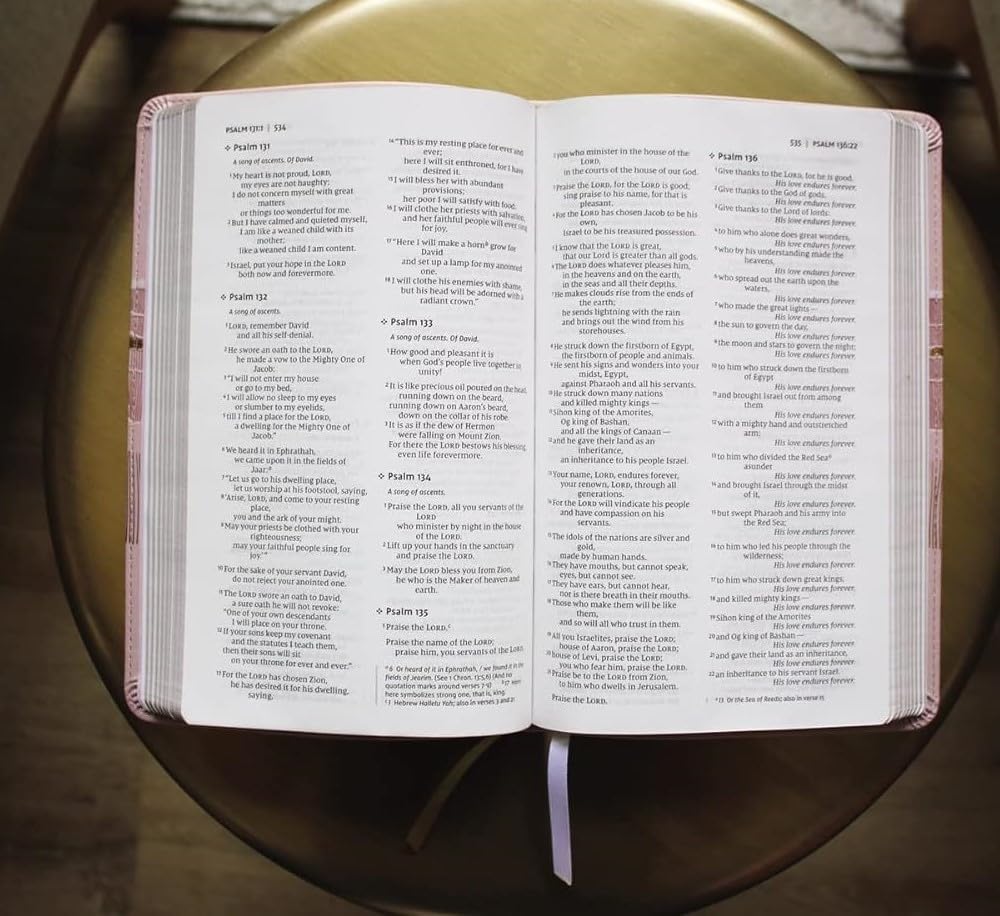 PSALM 131:1 | 534
✣ Psalm 131
A song of ascents. Of David.
1 My heart is not proud, LORD,
my eyes are not haughty;
I do not concern myself with great
matters
or things too wonderful for me.
2 But I have calmed and quieted myself,
I am like a weaned child with its
mother;
like a weaned child I am content.
3 Israel, put your hope in the LORD
both now and forevermore.
✣ Psalm 132
A song of ascents.
1 LORD, remember David
and all his self-denial.
2 He swore an oath to the LORD,
he made a vow to the Mighty One of
Jacob:
3 "I will not enter my house
or go to my bed,
4 I will allow no sleep to my eyes
or slumber to my eyelids,
5 till I find a place for the LORD,
a dwelling for the Mighty One of
Jacob."
6 We heard it in Ephrathah,
we came upon it in the fields of
Jaar:a
7 "Let us go to his dwelling place,
let us worship at his footstool, saying,
8 'Arise, LORD, and come to your resting
place,
you and the ark of your might.
9 May your priests be clothed with your
righteousness;
may your faithful people sing for
joy.'"
10 For the sake of your servant David,
do not reject your anointed one.
11 The LORD swore an oath to David,
a sure oath he will not revoke:
"One of your own descendants
I will place on your throne.
12 If your sons keep my covenant
and the statutes I teach them,
then their sons will sit
on your throne for ever and ever."
13 For the LORD has chosen Zion,
he has desired it for his dwelling,
saying,
14 "This is my resting place for ever and
ever;
here I will sit enthroned, for I have
desired it.
15 I will bless her with abundant
provisions;
her poor I will satisfy with food.
16 I will clothe her priests with salvation,
and her faithful people will ever sing
for joy.
17 "Here I will make a hornb grow for
David
and set up a lamp for my anointed
one.
18 I will clothe his enemies with shame,
but his head will be adorned with a
radiant crown."
✣ Psalm 133
A song of ascents. Of David.
1 How good and pleasant it is
when God's people live together in
unity!
2 It is like precious oil poured on the head,
running down on the beard,
running down on Aaron's beard,
down on the collar of his robe.
3 It is as if the dew of Hermon
were falling on Mount Zion.
For there the LORD bestows his blessing,
even life forevermore.
✣ Psalm 134
A song of ascents.
1 Praise the LORD, all you servants of the
LORD
who minister by night in the house
of the LORD.
2 Lift up your hands in the sanctuary
and praise the LORD.
3 May the LORD bless you from Zion,
he who is the Maker of heaven and
earth.
✣ Psalm 135
1 Praise the LORD.c
Praise the name of the LORD;
praise him, you servants of the LORD,
a 6 Or heard of it in Ephrathah, / we found it in the
fields of Jearim. (See 1 Chron. 13:5,6) (And no
quotation marks around verses 7-9) b 17 Horn
here symbolizes strong one, that is, king.
c 1 Hebrew Hallelu Yah; also in verses 3 and 21
535 | PSALM 136:22
2 you who minister in the house of the
LORD,
in the courts of the house of our God.
3 Praise the LORD, for the LORD is good;
sing praise to his name, for that is
pleasant.
4 For the LORD has chosen Jacob to be his
own,
Israel to be his treasured possession.
5 I know that the LORD is great,
that our Lord is greater than all gods.
6 The LORD does whatever pleases him,
in the heavens and on the earth,
in the seas and all their depths.
7 He makes clouds rise from the ends of
the earth;
he sends lightning with the rain
and brings out the wind from his
storehouses.
8 He struck down the firstborn of Egypt,
the firstborn of people and animals.
9 He sent his signs and wonders into your
midst, Egypt,
against Pharaoh and all his servants.
10 He struck down many nations
and killed mighty kings —
11 Sihon king of the Amorites,
Og king of Bashan,
and all the kings of Canaan —
12 and he gave their land as an
inheritance,
an inheritance to his people Israel.
13 Your name, LORD, endures forever,
your renown, LORD, through all
generations.
14 For the LORD will vindicate his people
and have compassion on his
servants.
15 The idols of the nations are silver and
gold,
made by human hands.
16 They have mouths, but cannot speak,
eyes, but cannot see.
17 They have ears, but cannot hear,
nor is there breath in their mouths.
18 Those who make them will be like
them,
and so will all who trust in them.
19 All you Israelites, praise the LORD;
house of Aaron, praise the LORD;
20 house of Levi, praise the LORD;
you who fear him, praise the LORD.
21 Praise be to the LORD from Zion,
to him who dwells in Jerusalem.
Praise the LORD.
✣ Psalm 136
1 Give thanks to the LORD, for he is good.
His love endures forever.
2 Give thanks to the God of gods.
His love endures forever.
3 Give thanks to the Lord of lords:
His love endures forever.
4 to him who alone does great wonders,
His love endures forever.
5 who by his understanding made the
heavens,
His love endures forever.
6 who spread out the earth upon the
waters,
His love endures forever.
7 who made the great lights —
His love endures forever.
8 the sun to govern the day,
His love endures forever.
9 the moon and stars to govern the night;
His love endures forever.
10 to him who struck down the firstborn
of Egypt
His love endures forever.
11 and brought Israel out from among
them
His love endures forever.
12 with a mighty hand and outstretched
arm;
His love endures forever.
13 to him who divided the Red Seaa
asunder
His love endures forever.
14 and brought Israel through the midst
of it,
His love endures forever.
15 but swept Pharaoh and his army into
the Red Sea;
His love endures forever.
16 to him who led his people through the
wilderness;
His love endures forever.
17 to him who struck down great kings,
His love endures forever.
18 and killed mighty kings —
His love endures forever.
19 Sihon king of the Amorites
His love endures forever.
20 and Og king of Bashan —
His love endures forever.
21 and gave their land as an inheritance,
His love endures forever.
22 an inheritance to his servant Israel.
His love endures forever.
a 13 Or the Sea of Reeds; also in verse 15